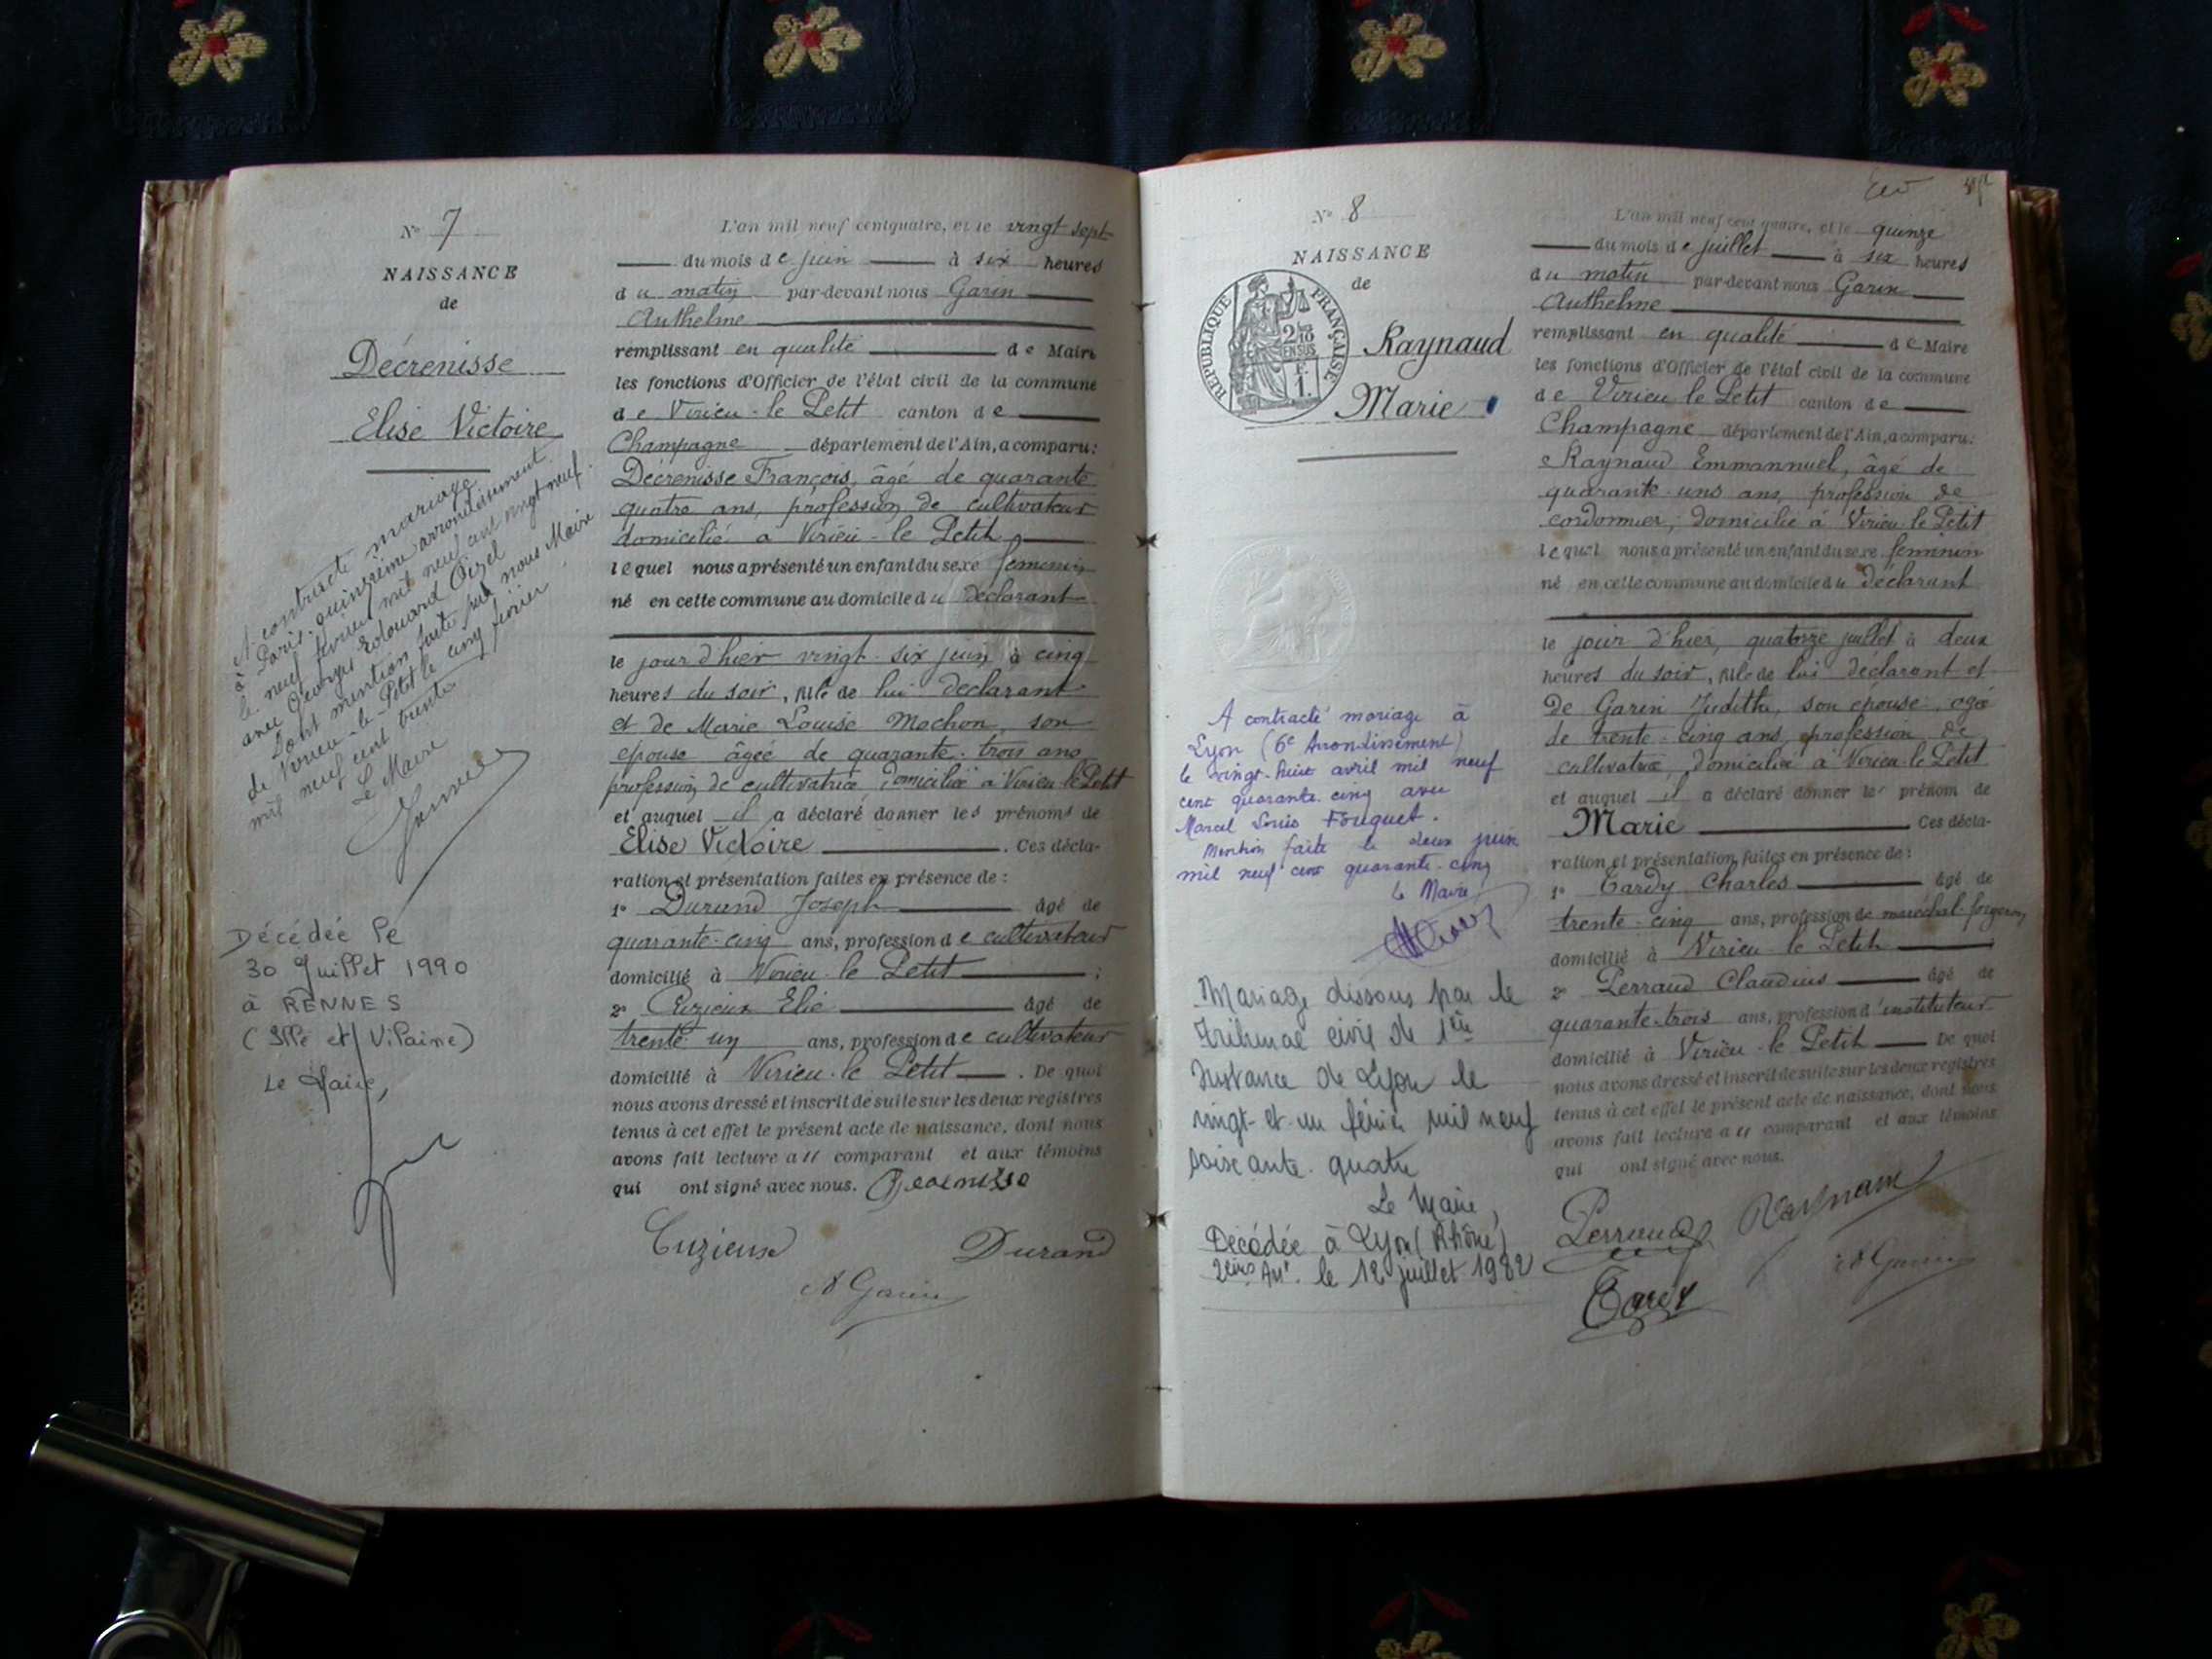 N° 7
NAISSANCE
de
Décrenisse
Elise Victoire
A contracté mariage
à Paris, quinzième arrondissement
le neuf février mil neuf cent vingt neuf
avec Georges Edouard Oizel
Dont mention faite par nous Maire
de Virieu-le-Petit le cinq février
mil neuf cent trente
Le Maire
Décédée le
30 Juillet 1990
à RENNES
(Ille et Vilaine)
Le Maire,
L'an mil neuf cent quatre, et le vingt sept
du mois de juin à six heures
du matin par-devant nous Garin
Anthelme
remplissant en qualité de Maire
les fonctions d'Officier de l'état civil de la commune
de Virieu-le Petit canton de
Champagne département de l'Ain, a comparu:
Décrenisse François, âgé de quarante
quatre ans, profession de cultivateur
domicilié à Virieu-le Petit
lequel nous a présenté un enfant du sexe féminin
né en cette commune au domicile du déclarant
le jour d'hier vingt-six juin à cinq
heures du soir, fille de lui déclarant
et de Marie Louise Mochon, son
épouse âgée de quarante-trois ans
profession de cultivatrice domiciliée à Virieu-le-Petit
et auquel il a déclaré donner les prénoms de
Elise Victoire . Ces décla-
ration et présentation faites en présence de :
1° Durand Joseph âgé de
quarante-cinq ans, profession de cultivateur
domicilié à Virieu-le Petit ;
2° Cuzieux Elie âgé de
trente un ans, profession de cultivateur
domicilié à Virieu-le Petit . De quoi
nous avons dressé et inscrit de suite sur les deux registres
tenus à cet effet le présent acte de naissance, dont nous
avons fait lecture au comparant et aux témoins
qui ont signé avec nous. Decrenisse
Cuzieux Durand
A Garin
N° 8
NAISSANCE
de
REPUBLIQUE FRANÇAISE
2/10
EN SUS
1
Raynaud
Marie
A contracté mariage à
Lyon (6e Arrondissement)
le vingt-huit avril mil neuf
cent quarante-cinq avec
Marcel Louis Fouquet.
Mention faite le deux juin
mil neuf cent quarante-cinq
Le Maire
Mariage dissous par le
tribunal civil de 1ère
Instance de Lyon le
vingt-et-un février mil neuf
soixante-quatre
Le Maire,
Décédée à Lyon (Rhône)
Arrt. le 12 juillet 1982
L'an mil neuf cent quatre, et le quinze
du mois de juillet à six heures
du matin par-devant nous Garin
Anthelme
remplissant en qualité de Maire
les fonctions d'Officier de l'état civil de la commune
de Virieu le Petit canton de
Champagne département de l'Ain, a comparu:
Raynaud Emmannuel, âgé de
quarante-uns ans, profession de
cordonnier, domicilié à Virieu-le Petit
lequel nous a présenté un enfant du sexe féminin
né en cette commune au domicile du déclarant
le jour d'hier, quatorze juillet à deux
heures du soir, fille de lui déclarant et
de Garin Judith, son épouse, agée
de trente-cinq ans, profession de
cultivatrice, domiciliée à Virieu-le Petit
et auquel il a déclaré donner le prénom de
Marie Ces décla-
ration et présentation faites en présence de :
1° Tardy Charles âgé de
trente-cinq ans, profession de maréchal-forgeron
domicilié à Virieu-le Petit ;
2° Perraud Claudius âgé de
quarante-trois ans, profession d'instituteur
domicilié à Virieu-le Petit De quoi
nous avons dressé et inscrit de suite sur les deux registres
tenus à cet effet le présent acte de naissance, dont nous
avons fait lecture au comparant et aux témoins
qui ont signé avec nous.
Perraud Raynaud
Tardy A Garin